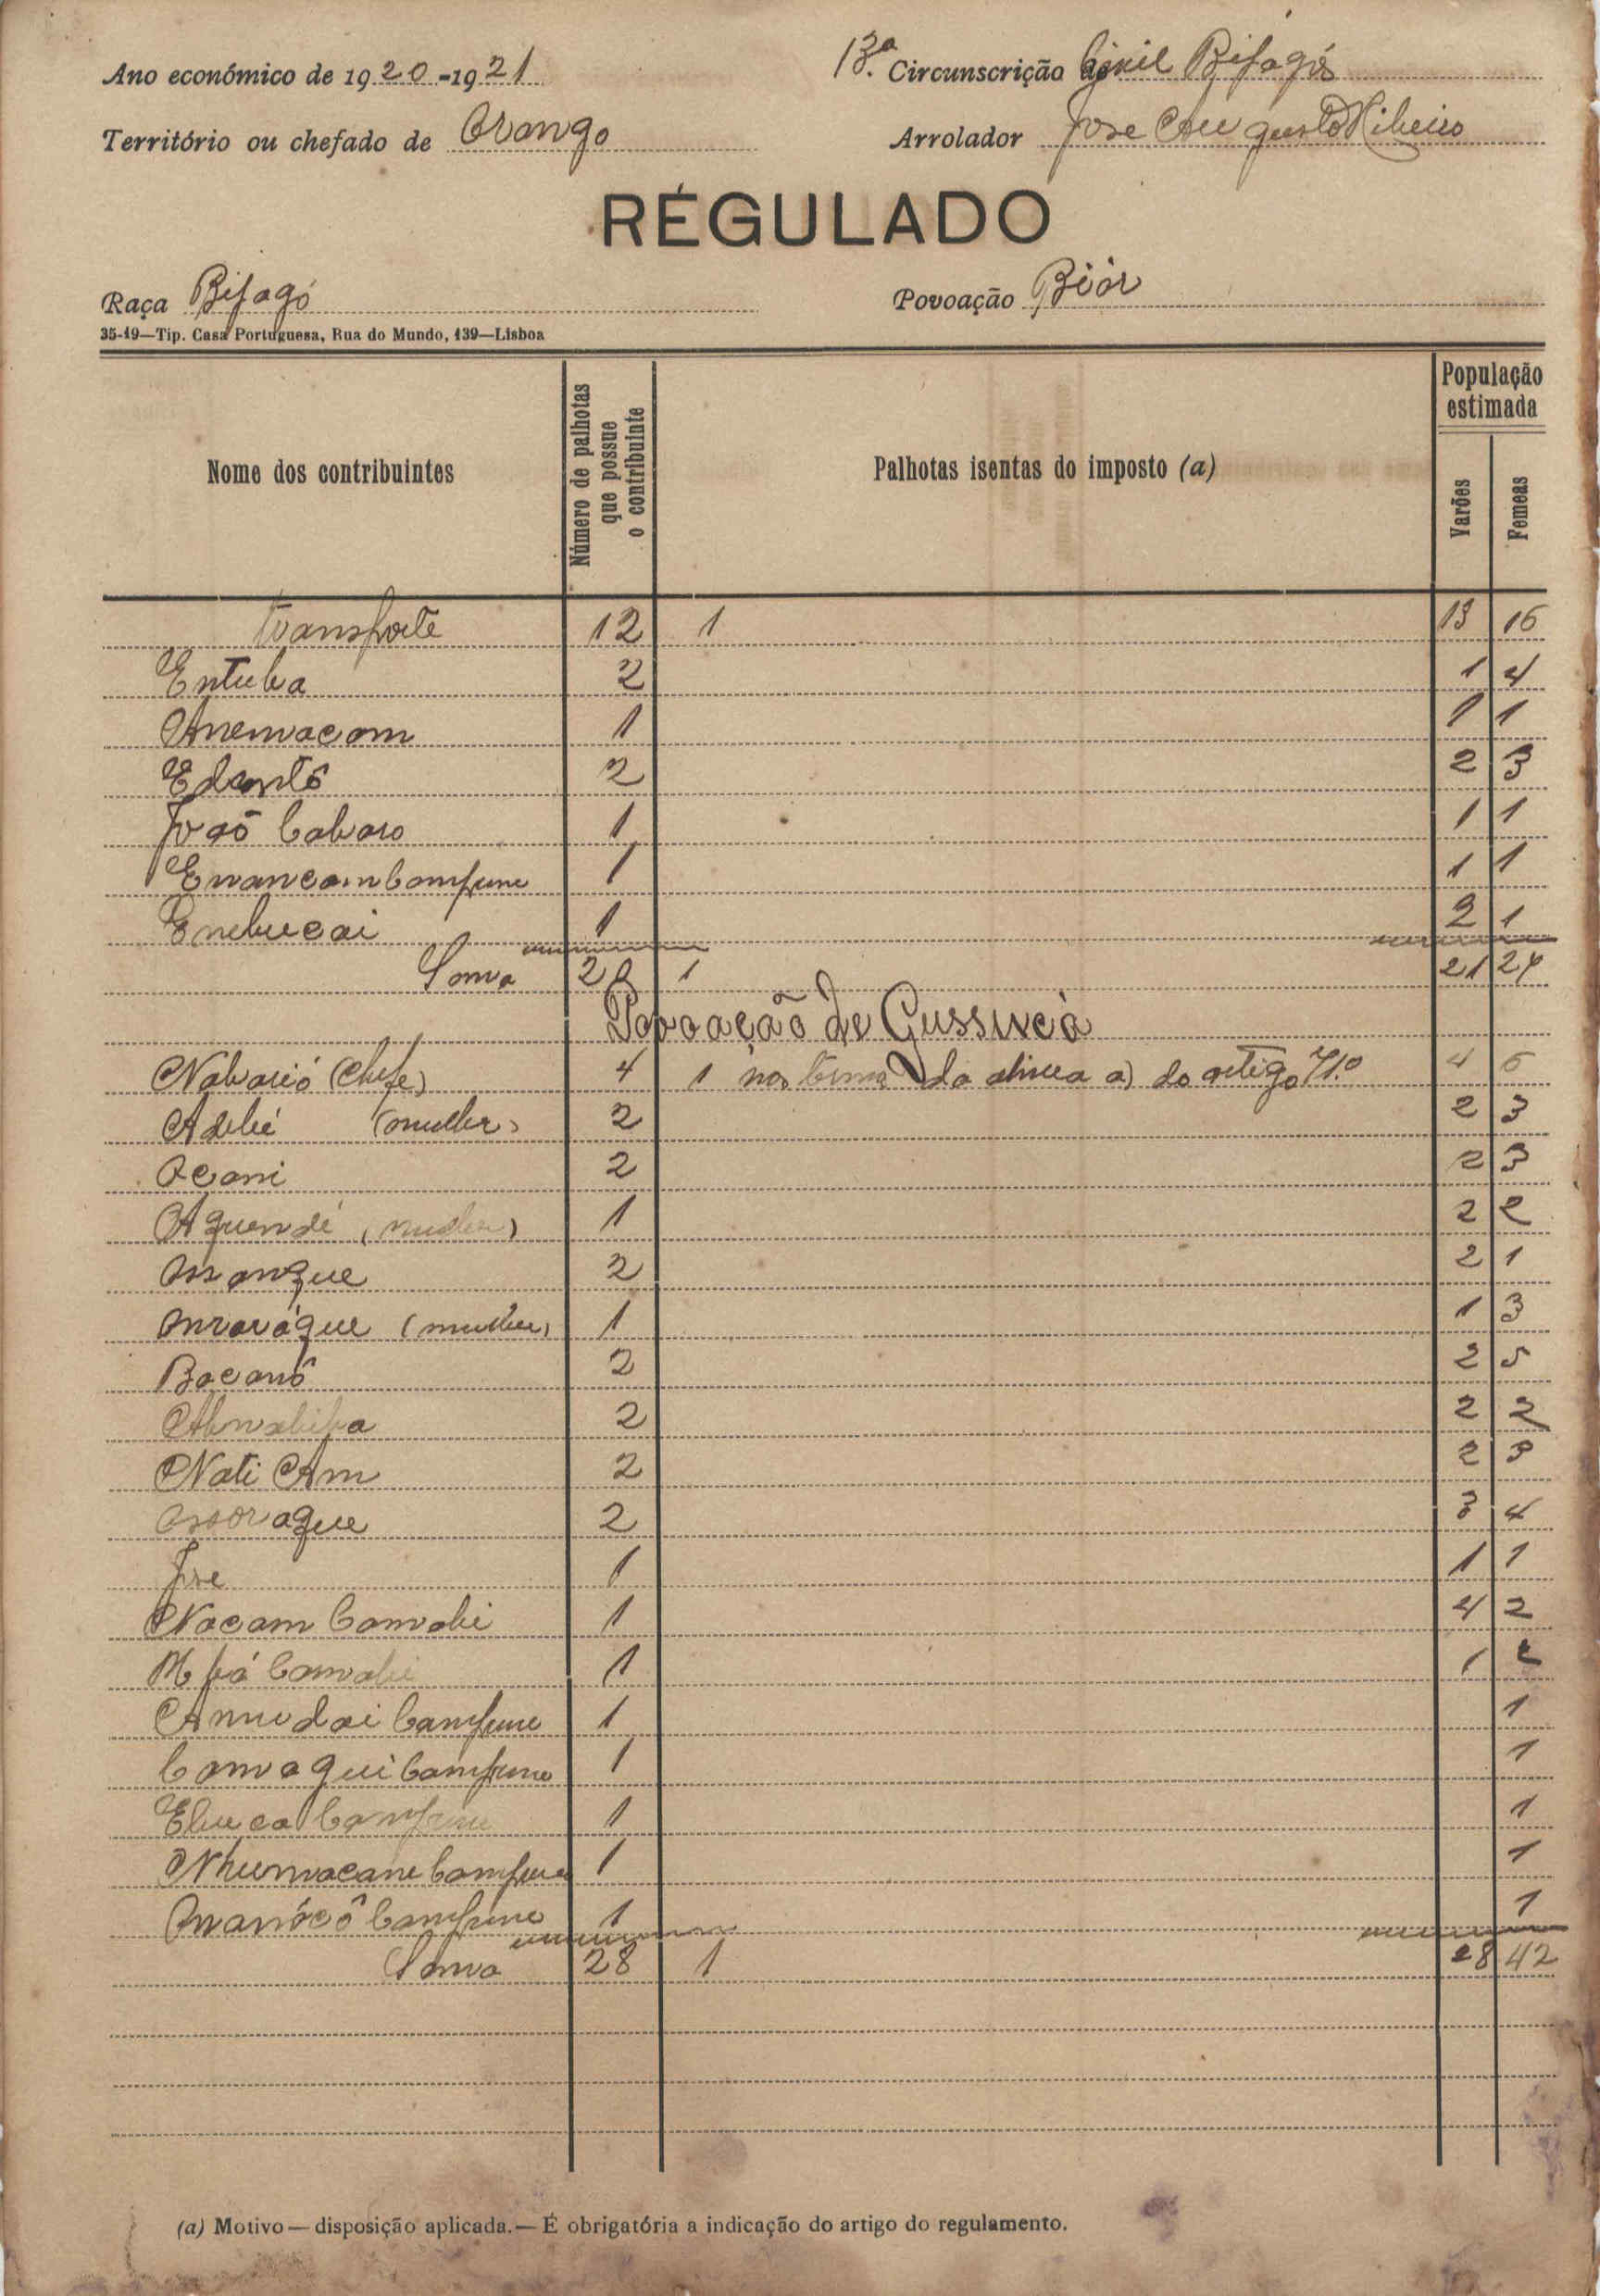 Ano económico de 1920-1921
13.ª Circunscrição Civil Bijagós
Território ou chefado de Orango
Arrolador Jose Augusto Ribeiro
RÉGULADO
Raça Bijagó
Povoação Biór
35-19—Tip. Casa Portuguesa, Rua do Mundo, 139—Lisboa
Nome dos contribuintes
Número de palhotas que possue o contribuinte
Palhotas isentas do imposto (a)
População estimada
Varões
Femeas
Transporte 12 1 13 16
Entuba 2 1 4
Anemacam 1 1 1
Edontô 2 2 3
João Cabaro 1 1 1
Enancam Camfune 1 1 1
Enebucai 1 2 1
Soma 20 1 21 27
Povoação de Gussineà
Nabarió (Chefe) 4 1 nos termos da alinea a) do artigo 71.º 4 6
Adebé (mulher) 2 2 3
Ocani 2 2 3
Aquendé (mulher) 1 2 2
Manque 2 2 1
(mulher) 1 1 3
Bacanô 2 2 5
2 2 2
Nati Am 2 2 3
2 3 4
Jose 1 1 1
Nacam Canabi 1 4 2
Canabi 1 1 2
Anudai Camfune 1 1
Canaqui Camfune 1 1
Ebuca Camfune 1 1
Nhumacane Camfune 1 1
Camfune 1 1
Soma 28 1 28 42
(a) Motivo — disposição aplicada. — É obrigatória a indicação do artigo do regulamento.